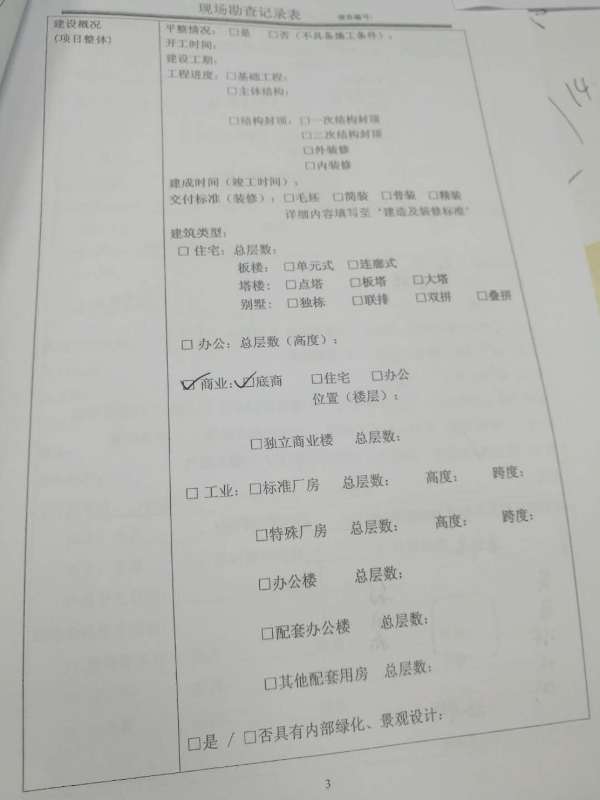 现场勘查记录表
报告编号:
建设概况
(项目整体)
平整情况：□是 □否（不具备施工条件）:
开工时间：
建设工期：
工程进度：□基础工程：
□主体结构：
□结构封顶：□一次结构封顶
□二次结构封顶
□外装修
□内装修
建成时间（竣工时间）：
交付标准（装修）：□毛坯 □简装 □普装 □精装
详细内容填写至“建造及装修标准”
建筑类型：
□ 住宅：总层数：
板楼： □单元式 □连廊式
塔楼： □点塔 □板塔 □大塔
别墅： □独栋 □联排 □双拼 □叠拼
□ 办公：总层数（高度）：
☑ 商业：☑底商 □住宅 □办公
位置（楼层）：
□独立商业楼 总层数：
□ 工业：□标准厂房 总层数： 高度： 跨度：
□特殊厂房 总层数： 高度： 跨度：
□办公楼 总层数：
□配套办公楼 总层数：
□其他配套用房 总层数：
□是 / □否具有内部绿化、景观设计：
3
14